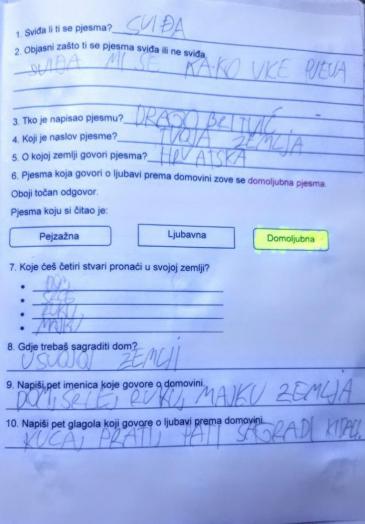 1. Sviđa li ti se pjesma? SVIĐA
2. Objasni zašto ti se pjesma sviđa ili ne sviđa
SVIĐA MI SE KAKO VKE PJEVA
3. Tko je napisao pjesmu? DRAGO
4. Koji je naslov pjesme? TVOJA ZEMLJA
5. O kojoj zemlji govori pjesma? HRVATSKA
6. Pjesma koja govori o ljubavi prema domovini zove se domoljubna pjesma.
Oboji točan odgovor.
Pjesma koju si čitao je:
Pejzažna Ljubavna Domoljubna
7. Koje ćeš četiri stvari pronaći u svojoj zemlji?
• DOM
• SRCE
• RUKU
• MAJKU
8. Gdje trebaš sagraditi dom?
U SVOJOJ ZEMLJI
9. Napiši pet imenica koje govore o domovini.
DOM, SRCE, RUKU, MAJKU ZEMLJA
10. Napiši pet glagola koji govore o ljubavi prema domovini.
KUCA, PRATI, PATI SAGRADI